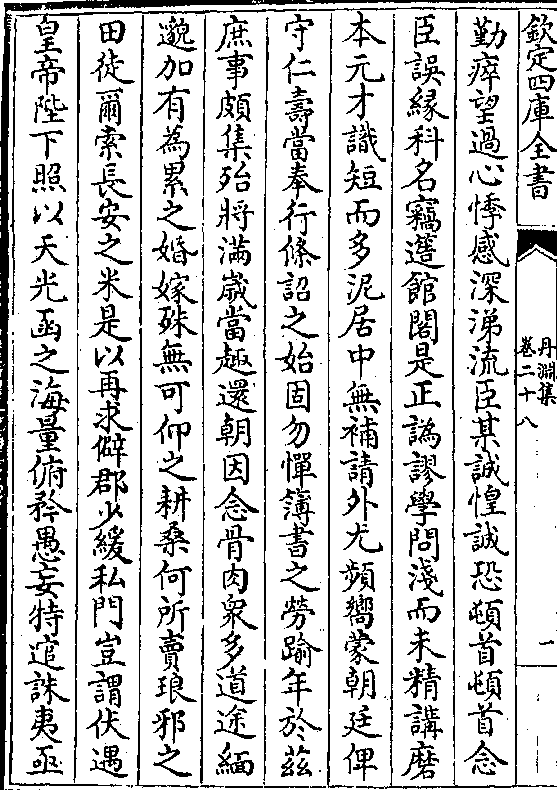 欽定四庫全書
丹淵集
卷二十八
一
勤瘁望過心悸感深涕流臣某誠惶誠恐頓首頓首念
臣誤縁科名竊塵館閣是正譌謬學問淺而未精講磨
本元才識短而多泥居中無補請外尤頻嚮蒙朝廷俾
守仁壽當奉行條詔之始固勿憚簿書之勞踰年於茲
庶事頗集殆將滿歲當趣還朝因念骨肉衆多道途緬
邈加有為累之婚嫁殊無可仰之耕桑何所賣琅邪之
田徒爾索長安之米是以再求僻郡少緩私門豈謂伏遇
皇帝陛下照以天光函之海量俯矜愚妄特逭誅夷亟